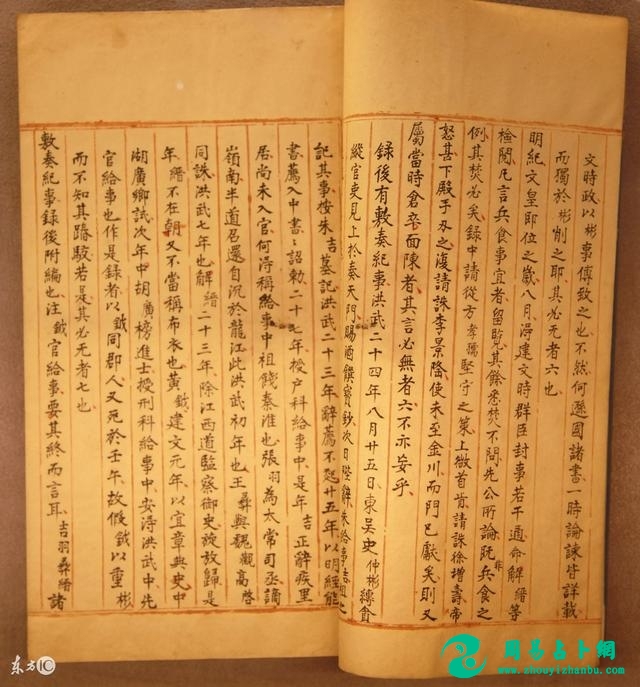 文時政以彬事傅致之也不然何遜國諸書一時論諫皆詳載
而獨於彬削之耶其必无者六也
明紀文皇即位之歲八月淂建文時群臣封事若干通命解縉等
檢閱凡言兵食事宜者留覧其餘悉焚不問先公所論既非兵食之
例其焚必矣録中請從方孝孺堅守之策上微首肯請誅徐增壽帝
怒甚下殿手刃之復請誅李景隆使未至金川而門已獻矣則又
屬當時倉卒面陳者其言必無者六不亦妄乎
録後有敷奏紀事洪武二十四年八月廿五日東吴史仲彬縛貪
縱官吏見上於奏天門賜酒饌寳鈔次日陛辭朱給事吉祖之
記其事按朱吉墓記洪武二十三年辭薦不起廿五年以明經能
書薦入中書詔勅二十七年授户科給事中是年吉正辭疾里
居尚未入官何淂稱給事中祖餞秦淮也張羽為太常司丞謫
嶺南半道召還自沉於龍江此洪武初年也王彝與魏觀高啓
同誅洪武七年也解縉二十三年除江西道監察御史旋放歸是
年縉不在朝又不當稱布衣也黄鉞建文元年以宜章典史中
湖廣鄉試次年中胡廣榜進士授刑科給事中安淂洪武中先
官給事也作是録者以鉞同郡人又死於壬年故假鉞以重彬
而不知其踳駁若是其必无者七也
敷奏紀事録後附編也注鉞官給事要其終而言耳吉羽彝縉諸
東方IC
周易占卜網
www.zhouyizhanbu.com